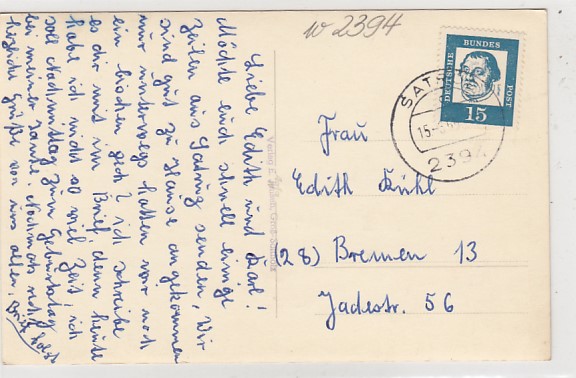 w 2394
Liebe Edith und Karl!
Möchte euch schnell einige
Zeilen aus Satrup senden, Wir
sind gut zu Hause angekommen
nur unterwegs hatten wir noch
ein bischen pech? ich schreibe
es dir mit im Brief, denn heute
habe ich nicht so viel Zeit! ich
soll Nachmittag zum Geburtstag
bei meiner Tante. Nochmals recht
herzliche Grüße von uns allen,
Verlag
DEUTSCHE
BUNDES
POST
15
SATR
15-
2394
Frau
Edith Kühl
(28) Bremen 13
Jadestr. 56